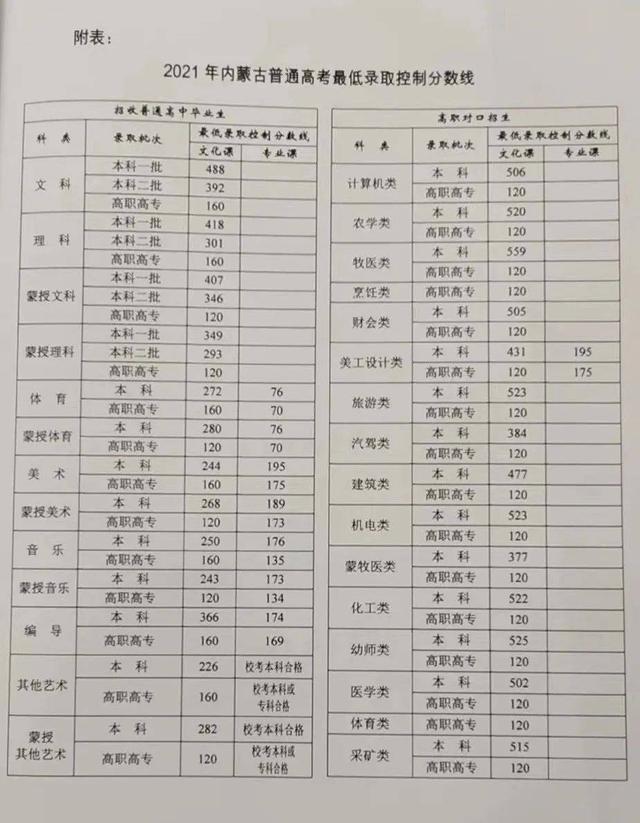 附表：
2021 年内蒙古普通高考最低录取控制分数线
招收普通高中毕业生
科 类 录取批次 最低录取控制分数线
文化课 专业课
文 科 本科一批 488
本科二批 392
高职高专 160
理 科 本科一批 418
本科二批 301
高职高专 160
蒙授文科 本科一批 407
本科二批 346
高职高专 120
蒙授理科 本科一批 349
本科二批 293
高职高专 120
体 育 本 科 272 76
高职高专 160 70
蒙授体育 本 科 280 76
高职高专 120 70
美 术 本 科 244 195
高职高专 160 175
蒙授美术 本 科 268 189
高职高专 120 173
音 乐 本 科 250 176
高职高专 160 135
蒙授音乐 本 科 243 173
高职高专 120 134
编 导 本 科 366 174
高职高专 160 169
其他艺术 本 科 226 校考本科合格
高职高专 160 校考本科或
专科合格
蒙授
其他艺术 本 科 282 校考本科合格
高职高专 120 校考本科或
专科合格
高职对口招生
科 类 录取批次 最低录取控制分数线
文化课 专业课
计算机类 本 科 506
高职高专 120
农学类 本 科 520
高职高专 120
牧医类 本 科 559
高职高专 120
烹饪类 高职高专 120
财会类 本 科 505
高职高专 120
美工设计类 本 科 431 195
高职高专 120 175
旅游类 本 科 523
高职高专 120
汽驾类 本 科 384
高职高专 120
建筑类 本 科 477
高职高专 120
机电类 本 科 523
高职高专 120
蒙牧医类 本 科 377
高职高专 120
化工类 本 科 522
高职高专 120
幼师类 本 科 525
高职高专 120
医学类 本 科 502
高职高专 120
体育类 高职高专 120
采矿类 本 科 515
高职高专 120